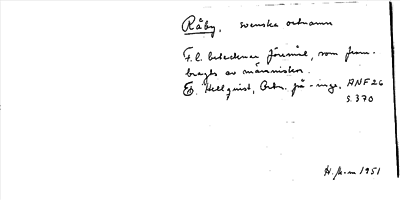 Råby, svenska ortnamn
F.l. betecknar föremål, som fram-
bragts av människor.
E. Hellquist, Ortn. på -inge. ANF 26
s. 370
H. M-m 1951